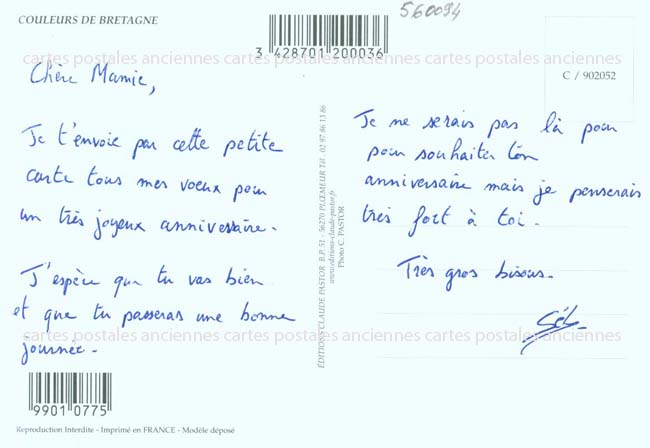 COULEURS DE BRETAGNE
560094
3 428701 200036
cartes postales anciennes cartes postales anciennes cartes postales anciennes
C / 902052
Chère Mamie,
Je t'envoie par cette petite
carte tous mes voeux pour
un très joyeux anniversaire.
J'espère que tu vas bien
et que tu passeras une bonne
journée.
ÉDITIONS CLAUDE PASTOR B.P. 51 - 56270 PLŒMEUR Tél. 02 97 86 13 86
www.editions-claude-pastor.fr
Photo C. PASTOR
Je ne serais pas là pour
pour souhaiter ton
anniversaire mais je penserais
très fort à toi.
Très gros bisous.
cartes postales anciennes cartes postales anciennes cartes postales anciennes
9901 0775
Reproduction Interdite - Imprimé en FRANCE - Modèle déposé